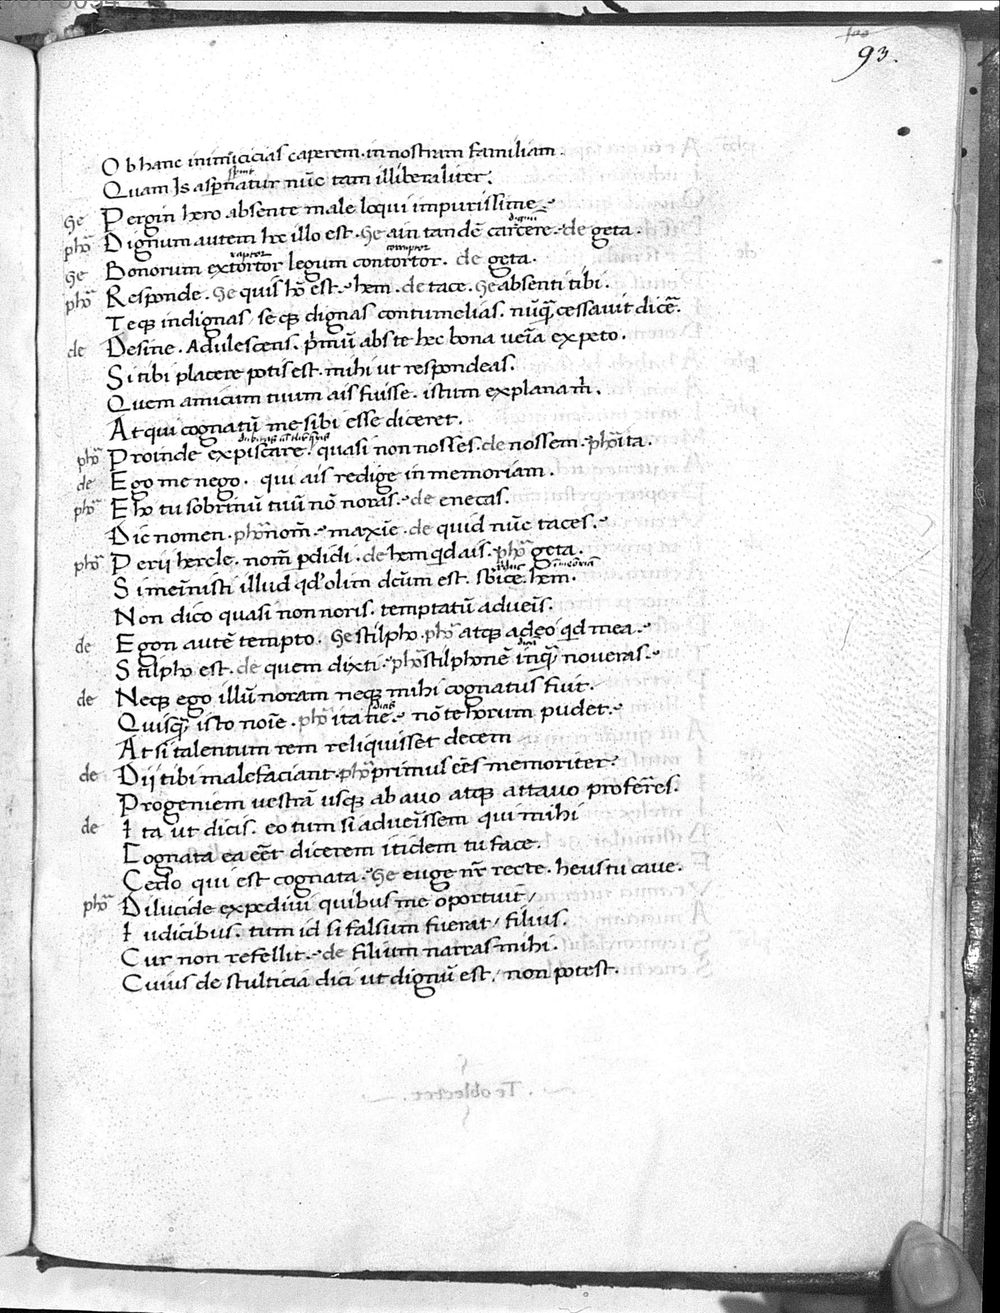 93.
Ob hanc inimicicias caperem in nostram familiam.
Quam Is aspernatur nūc tam illiberaliter.
Ge Pergin hero absente male loqui impurissime.
phō Dignum autem hoc illo est. Ge ain tandē carcere. de geta.
Ge Bonorum extortor legum contortor. de geta.
phō Responde. Ge quis hō est. hem. de tace. Ge absenti tibi.
Teq; indignas seq; dignas contumelias. nūq̄ cessauit dicē.
de Desine. Adulescens. p̄mū abs te hec bona ueīa expeto.
Si tibi placere potis est. mihi ut respondeas.
Quem amicum tuum ais fuisse. istum explana m̄.
At qui cognatū me sibi esse diceret.
phō Proinde expiscare quasi non nosses. de nossem. phō ita.
de Ego me nego. qui ais redige in memoriam.
phō Eho tu sobrinū tuū nō noras. de enecas.
Dic nomen. phō nom̄. maxīe. de quid nūc taces.
phō Perij hercle. nom̄ pdidi. de hem qd ais. phō geta.
Si meīnisti illud qd olim dcūm est. sbice. hem.
Non dico quasi non noris. temptatū adueīs.
de Egon autē tempto. Ge stilpho. phō atq; adeo qd mea.
Stilpho est. de quem dixti. phō stilphonē inq̄ noueras.
de Neq; ego illū noram neq; mihi cognatus fuit.
Quisq̄ isto noīe. phō ita nō te horum pudet.
At si talentum rem reliquisset decem
de Dij tibi malefaciant. phō primus eēs memoriter.
Progeniem uestrā usq; ab auo atq; attauo proferēs.
de Ita ut dicis. eo tum si adueīssem qui mihi
Cognata ea eēt dicerem itidem tu face.
Cedo qui est cognata. Ge euge nr̄ recte. heus tu caue.
phō Dilucide expediui quibus me oportuit
Iudicibus. tum id si falsum fuerat filius.
Cur non refellit. de filium narras mihi.
Cuius de stulticia dici ut dignū est non potest.